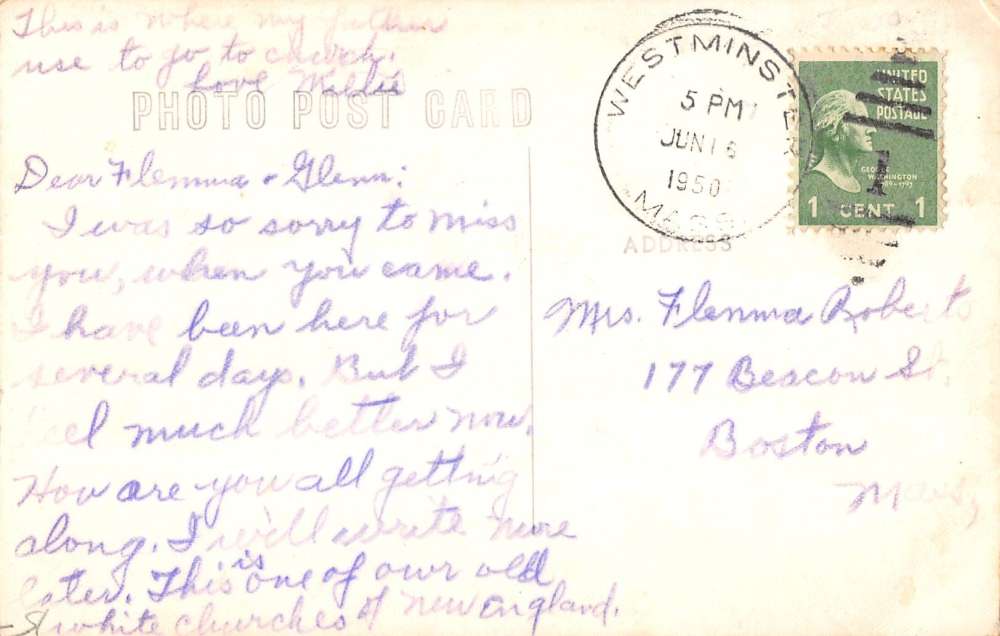 This is where my father
use to go to church.
Love Millie
PHOTO POST CARD
Dear Flemma & Glenn:
I was so sorry to miss
you, when you came.
I have been here for
several days. But I
feel much better now.
How are you all getting
along. I will write more
later. This is one of our old
white churches of new england.
WESTMINSTER
5 PM
JUN 16
1950
MASS
UNITED
STATES
POSTAGE
GEORGE
WASHINGTON
1789-1797
1 CENT 1
ADDRESS
Mrs. Flemma Roberts
177 Beacon St.
Boston
Mass,